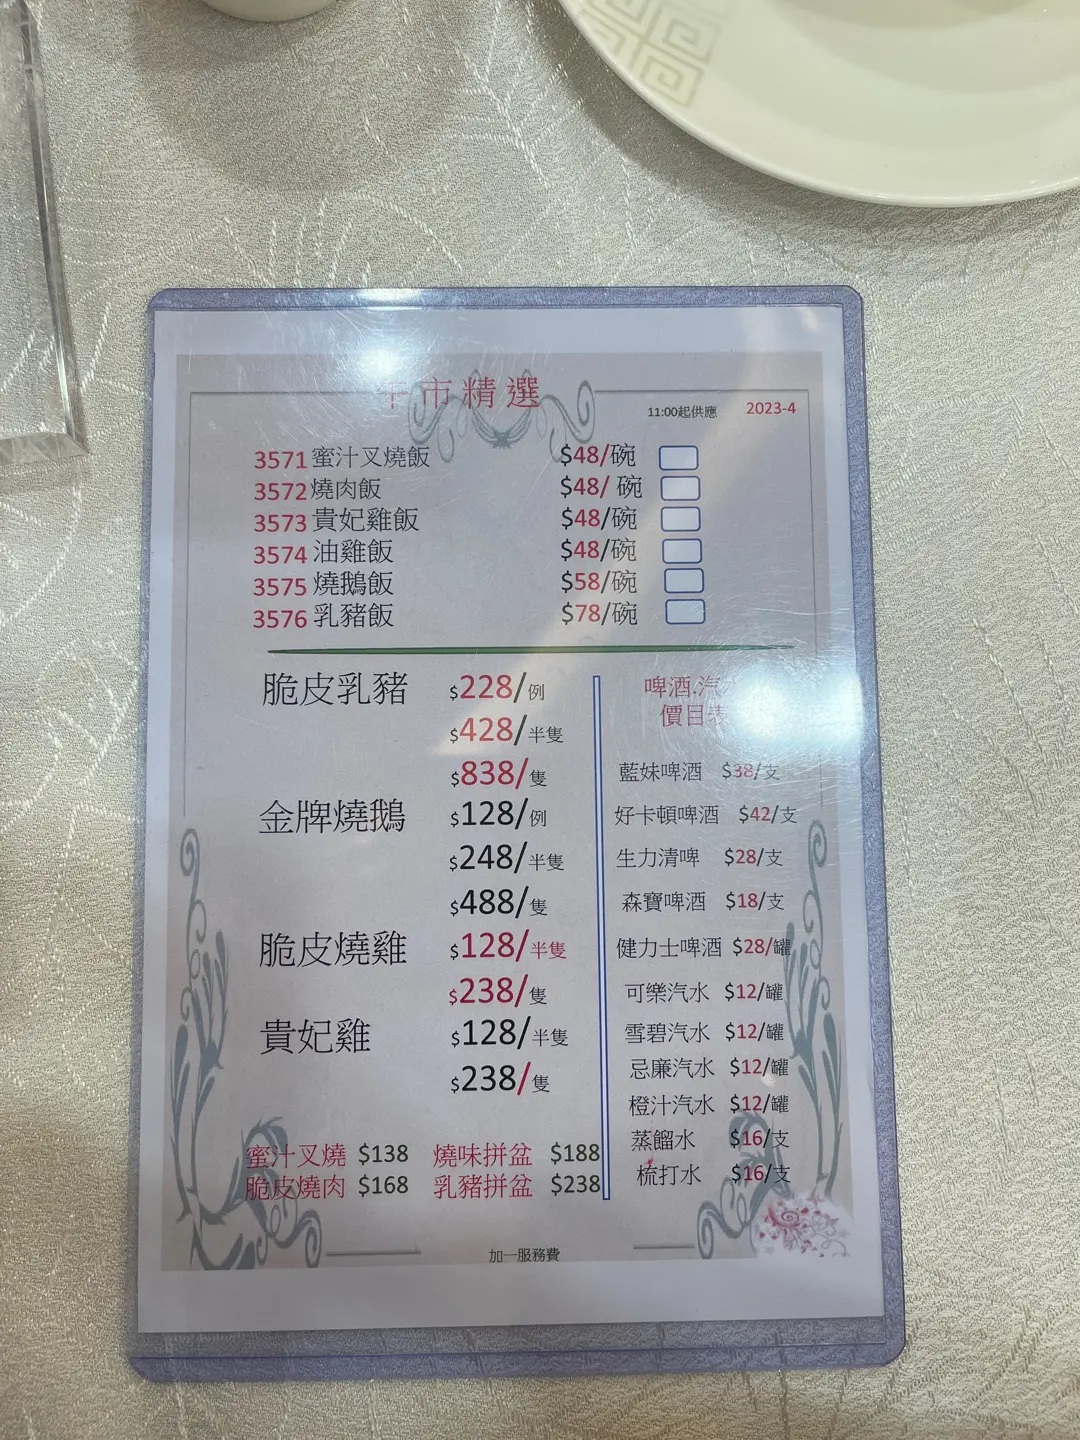 午市精選
11:00起供應 2023-4
3571 蜜汁叉燒飯 $48/碗
3572 燒肉飯 $48/ 碗
3573 貴妃雞飯 $48/碗
3574 油雞飯 $48/碗
3575 燒鵝飯 $58/碗
3576 乳豬飯 $78/碗
脆皮乳豬 $228/例
$428/半隻
$838/隻
金牌燒鵝 $128/例
$248/半隻
$488/隻
脆皮燒雞 $128/半隻
$238/隻
貴妃雞 $128/半隻
$238/隻
蜜汁叉燒 $138 燒味拼盆 $188
脆皮燒肉 $168 乳豬拼盆 $238
啤酒.汽
價目表
藍妹啤酒 $38/支
好卡頓啤酒 $42/支
生力清啤 $28/支
森寶啤酒 $18/支
健力士啤酒 $28/罐
可樂汽水 $12/罐
雪碧汽水 $12/罐
忌廉汽水 $12/罐
橙汁汽水 $12/罐
蒸餾水 $16/支
梳打水 $16/支
加一服務費